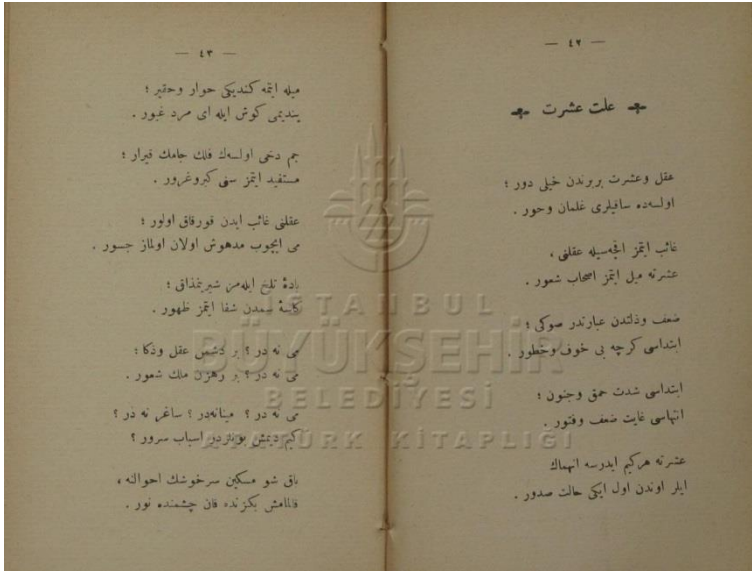 — ٤٢ —
علت عشرت
عقل وعشرت بربرندن خیلی دور ؛
اولسه‌ده ساقیلری غلمان وحور .
غائب ایتمز اقچه‌سیله عقلنی ،
عشرته میل ایتمز اصحاب شعور .
ضعف وذلتدن عبارتدر صوکی ؛
ابتداسی کرچه بی خوف وخطور .
ابتداسی شدت حمق وجنون ؛
انتهاسی غایت ضعف وفتور .
عشرته هرکیم ایدرسه انهماك
ایلر اوندن اول ایکی حالت صدور .
— ٤٣ —
میله ایتمه کندیکی خوار وحقیر ؛
پندیمی کوش ایله ای مرد غیور .
جم دخی اولسه‌ك فلك جامك قیرار ؛
مستفید ایتمز سنی کبروغرور .
عقلنی غائب ایدن قورقاق اولور ؛
می ایچوب مدهوش اولان اولماز جسور .
بادهٔ تلخ ایله‌مز شیرینمذاق ؛
کاسهٔ سمدن شفا ایتمز ظهور .
می نه در ؟ بر دشمن عقل وذکا ؛
می نه در ؟ بر رهزن ملك شعور .
می نه در ؟ میخانه‌در ؟ ساغر نه در ؟
کیم دیمش بونلردر اسباب سرور ؟
باق شو مسکین سرخوشك احوالنه ،
قالمامش بکزنده قان چشمنده نور .
İSTANBUL
BÜYÜKŞEHİR
BELEDİYESİ
ATATÜRK KİTAPLIĞI